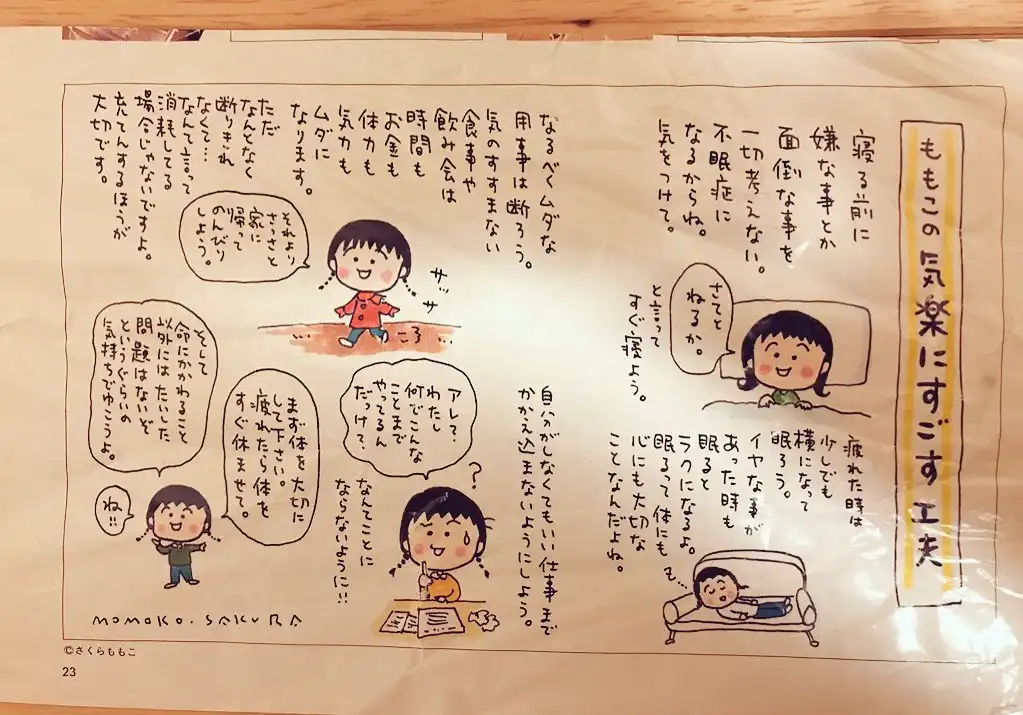 ももこの気楽にすごす工夫
寝る前に
嫌な事とか
面倒な事を
一切考えない。
不眠症に
なるからね。
気をつけて。
さてと
ねるか。
と言って
すぐ寝よう。
疲れた時は
少しでも
横になって
眠ろう。
イヤな事が
あった時も
眠ると
ラクになるよ。
眠るって体にも
心にも大切な
ことなんだよね。
も…
なるべくムダな
用事は断ろう。
気のすすまない
食事や
飲み会は
時間も
お金も
体力も
気力も
ムダに
なります。
ただ
なんとなく
断りきれ
なくて…
なんて言って
消耗してる
場合じゃないですよ。
充てんするほうが
大切です。
それより
さっさと
家に
帰って
のんびり
しよう。
サッサ
自分がしなくてもいい仕事まで
かかえ込まないようにしよう。
アレ?
わたし
何でこんな
ことまで
やってるん
だっけ?
?
なんてことに
ならないように!!
まず体を大切に
して下さい。
疲れたら体を
すぐ休ませて。
そして
命にかかわること
以外にはたいした
問題はないぞ
というぐらいの
気持ちでゆこうよ。
ね!!
MOMOKO.SAKURA
©さくらももこ
23